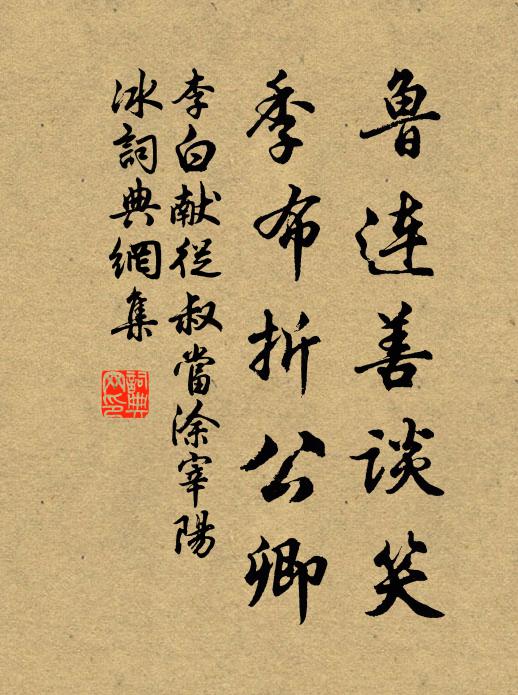 鲁连善谈笑
季布折公卿
李白献從叔當涂宰陽
冰詞典網集
詞典
网印